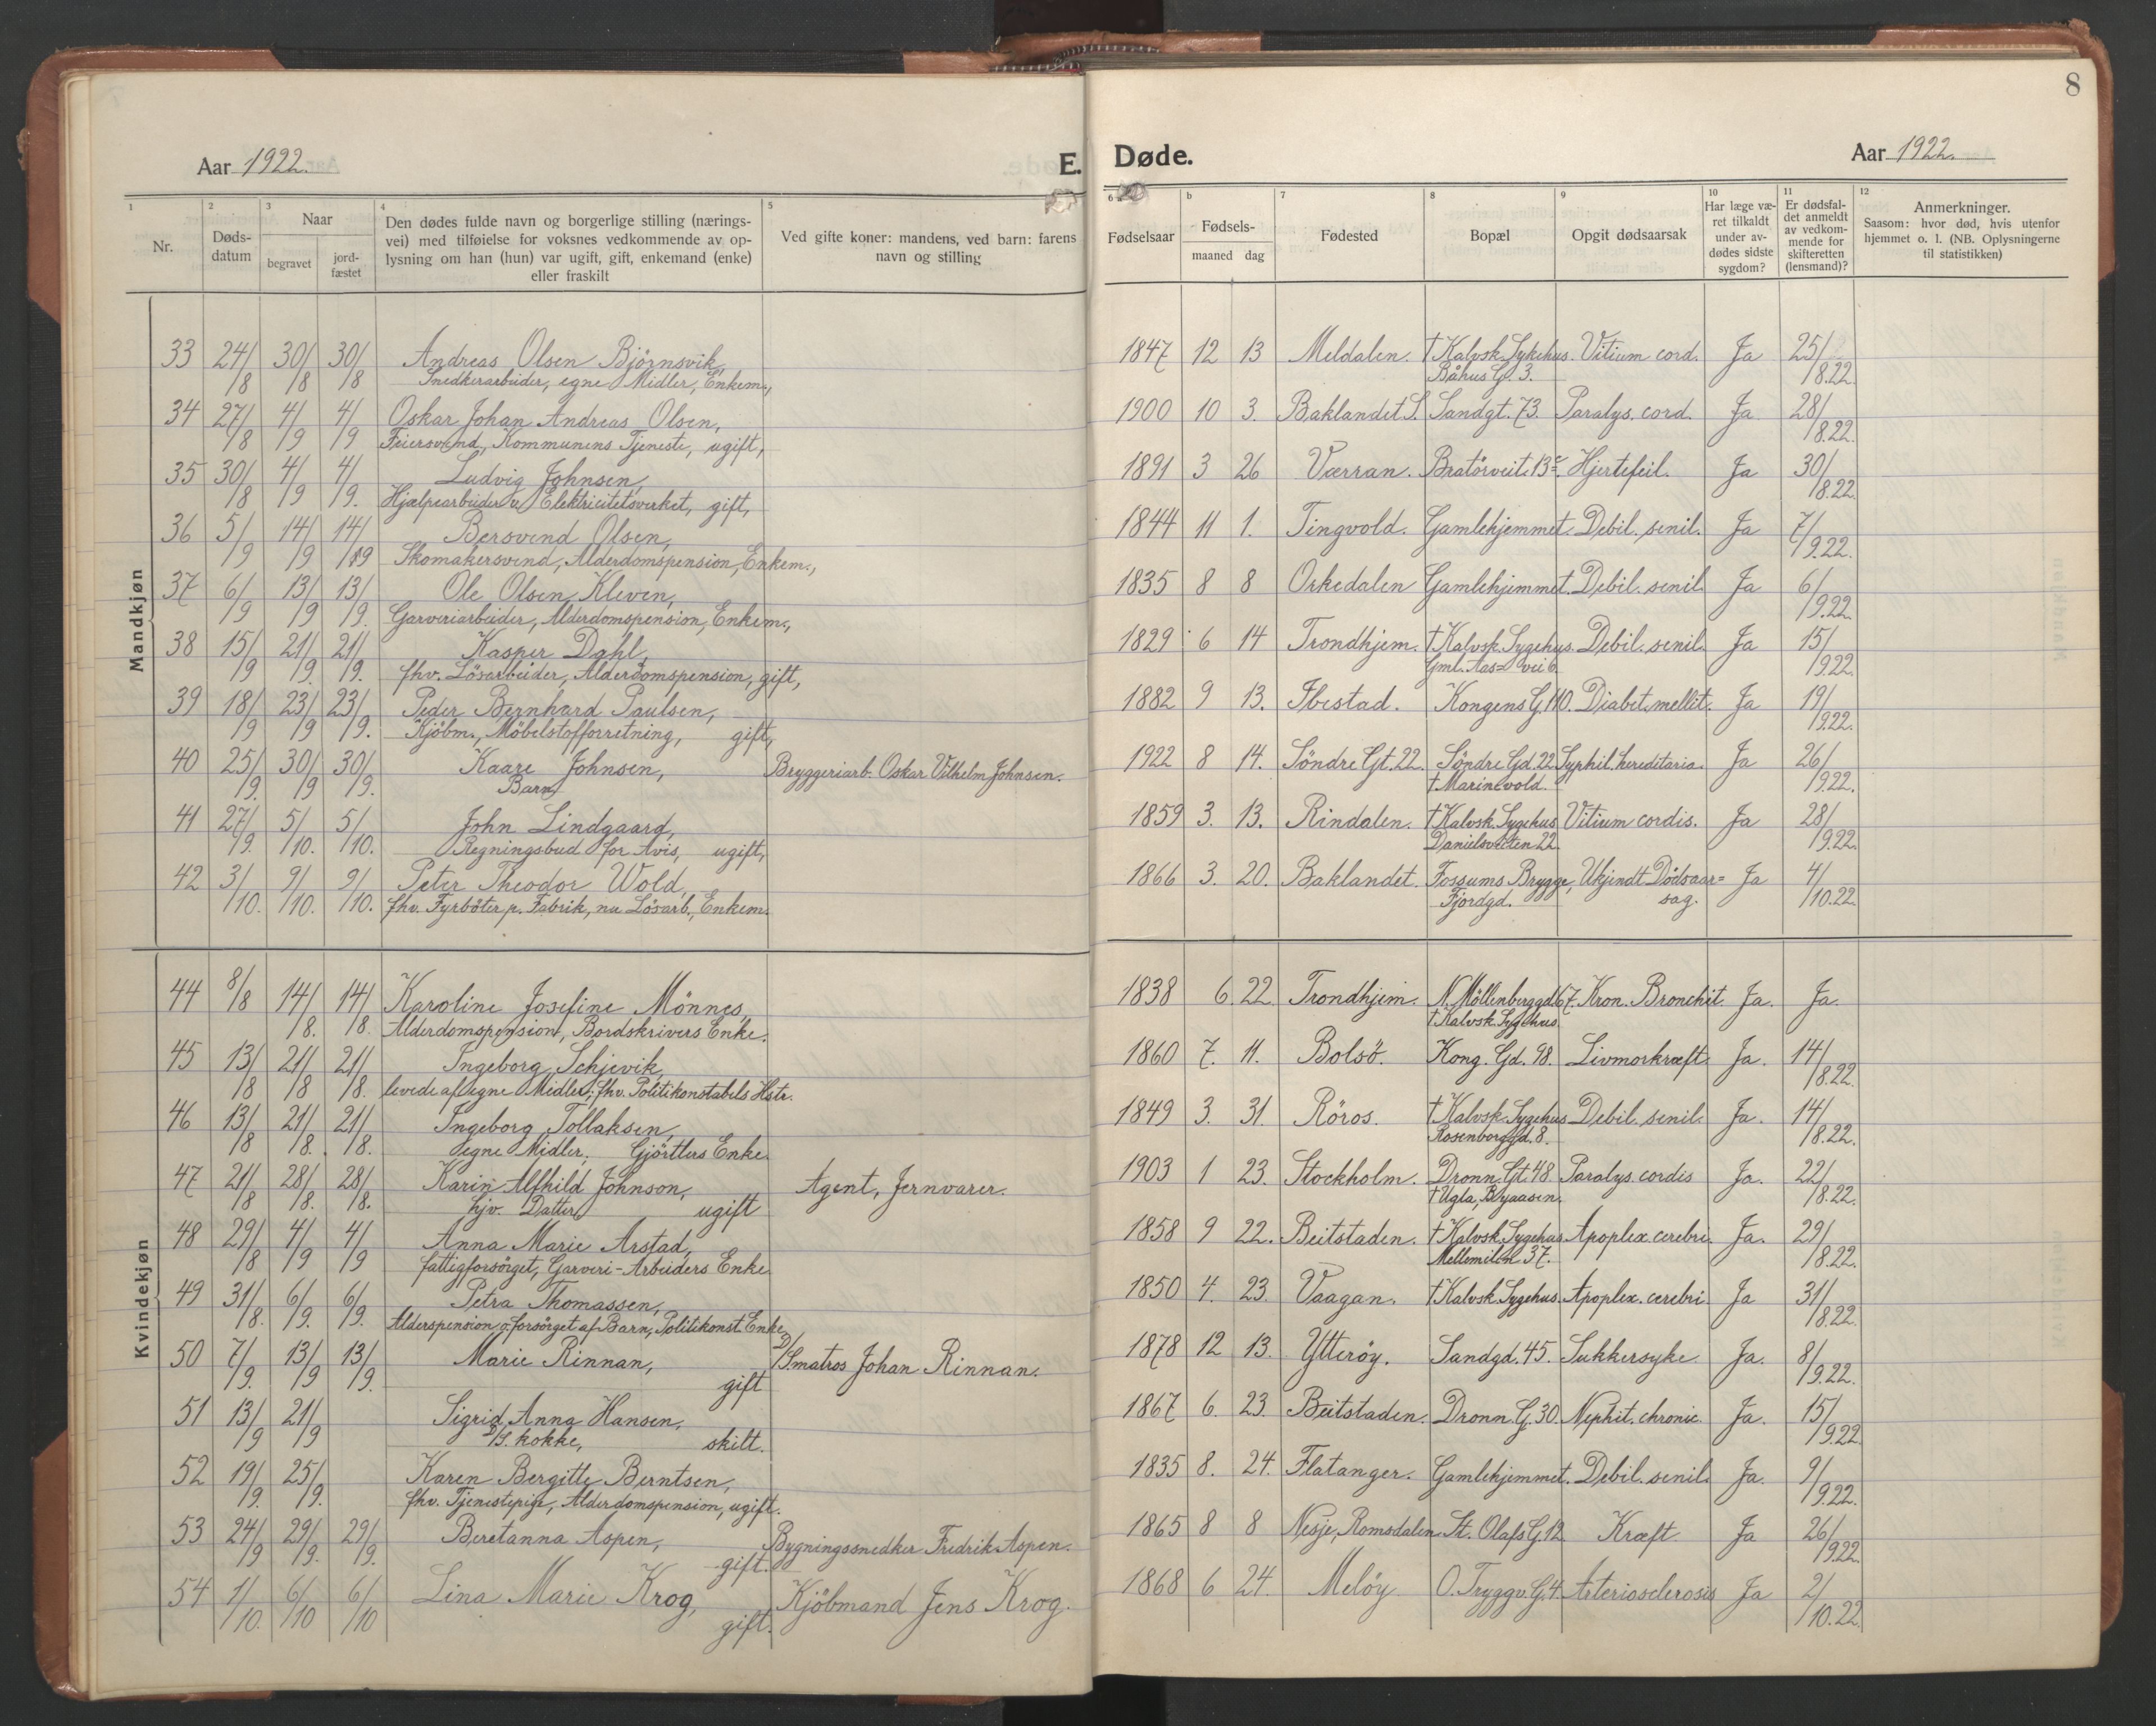 8
Aar 1922.
E. Døde.
Aar 1922.
1 2 3 4 5 6 a b 7 8 9 10 11 12
Nr.
Døds-
datum
Naar
begravet
jord-
fæstet
Den dødes fulde navn og borgerlige stilling (nærings-
vei) med tilføielse for voksnes vedkommende av op-
lysning om han (hun) var ugift, gift, enkemand (enke)
eller fraskilt
Ved gifte koner: mandens, ved barn: farens
navn og stilling
Fødselsaar
Fødsels-
maaned dag
Fødested
Bopæl
Opgit dødsaarsak
Har læge væ-
ret tilkaldt
under av-
dødes sidste
sygdom?
Er dødsfal-
det anmeldt
av vedkom-
mende for
skifteretten
(lensmand)?
Anmerkninger.
Saasom: hvor død, hvis utenfor
hjemmet o. l. (NB. Oplysningerne
til statistikken)
Mandkjøn
33 24/8 30/8 30/8 Andreas Olsen Björnsvik, 1847 12 13 Meldalen. † Kalvsk. Sykehus. Vitium cord. Ja 25/8.22.
Snedkerarbeider, egne Midler, Enkem., Båhus G. 3.
34 27/8 4/9 4/9 Oskar Johan Andreas Olsen, 1900 10 3. Baklandet S. Sandgt. 73. Paralys. cord. Ja 28/8.22.
Feiersvend, Kommunens Tjeneste, ugift,
35 30/8 4/9 4/9. Ludvig Johnsen, 1891 3 26 Værran. Bratörveit. 13c. Hjertefeil. Ja 30/8.22.
Hjælpearbeider v. Elektricitetsverket, gift,
36 5/9 14/9 14/9 Bersvend Olsen, 1844 11 1. Tingvold. Gamlehjemmet. Debil. senil. Ja 7/9.22.
Skomakersvend, Alderdomspension, Enkem.,
37 6/9 13/9 13/9. Ole Olsen Kleven, 1835 8 8 Orkedalen Gamlehjemmet. Debil. senil. Ja 6/9.22.
Garveriarbeider, Alderdomspension, Enkem.,
38 15/9 21/9. 21/9. Kasper Dahl, 1829 6 14 Trondhjem. † Kalvsk. Sygehus. Debil. senil. Ja 15/9.22.
fhv. Lösarbeider, Alderdomspension, gift, Gml. Aas= vei 6.
39 18/9 23/9 23/9. Peder Bernhard Paulsen, 1882 9 13. Ibestad. Kongens G. 110. Diabet. mellit. Ja 19/9.22.
Kjöbm., Möbelstofforretning, gift,
40 25/9. 30/9 30/9. Kaare Johnsen, Bryggeriarb. Oskar Vilhelm Johnsen. 1922 8 14. Söndre Gt. 22. Söndre Gd. 22 Syphil. hereditaria. Ja 26/9.22.
Barn, † Marinevold.
41 27/9. 5/10. 5/10. John Lindgaard, 1859 3. 13. Rindalen. † Kalvsk. Sygehus Vitium cordis. Ja 28/9.22.
Regningsbud for Avis, ugift, Danielsveiten 22.
42 3/10. 9/10. 9/10. Peter Theodor Wold, 1866 3. 20. Baklandet. Fossums Brygge, Ukjendt Dödsaar= Ja 4/10.22.
fhv. Fyrböter p. Fabrik, nu Lösarb., Enkem. Fjordgd. sag.
Kvindekjøn
44 8/8 14/8. 14/8. Karoline Josefine Mönnes, 1838 6 22 Trondhjem. N. Möllenberggd. 67. Kron. Bronchit. Ja. Ja.
Alderdomspension, Bordskrivers Enke. † Kalvsk. Sygehus
45 13/8 21/8 21/8. Ingeborg Schjevik, 1860 7. 11. Bolsö. Kong. Gd. 98. Livmorkræft. Ja. 14/8.22.
levede af egne Midler; fhv. Politikonstabels Hstr.
46 13/8 21/8. 21/8. Ingeborg Tollaksen, 1849 3. 31. Röros. † Kalvsk. Sygehus Debil. senil. Ja. 14/8.22.
egne Midler, Gjörtlers Enke. Rosenborggd. 8.
47 21/8 28/8. 28/8. Karin Alfhild Johnson, Agent, Jernvarer. 1903 1 23. Stockholm. Dronn. Gt. 48 Paralys. cordis Ja. 22/8.22.
hjv. Datter, ugift † Ugla, Byaasen.
48 29/8 4/9 4/9 Anna Marie Arstad, 1858 9 22. Beitstaden. † Kalvsk. Sygehus Apoplex. cerebri. Ja. 29/8.22.
fattigforsörget, Garveri-Arbeiders Enke Mellemilen 37.
49 31/8. 6/9. 6/9. Petra Thomassen, 1850 4. 23. Vaagan. † Kalvsk. Sygehus. Apoplex. cerebri Ja 31/8.22.
Alderspension o. forsörget af Barn, Politikonst. Enke,
50 7/9. 13/9 13/9. Marie Rinnan, D/Smatros Johan Rinnan. 1878 12 13. Ytteröy. Sandgd. 45. Sukkersyke. Ja. 8/9.22.
gift
51 13/9 21/9 Sigrid Anna Hansen, 1867 6. 23. Beitstaden. Dronn. G. 30. Nephit. chronic. Ja. 15/9.22
D/S. kokke, skilt.
52 19/9. 25/9. Karen Bergitte Berntsen, 1835 8. 24. Flatanger. Gamlehjemmet. Debil. senil. Ja. 9/9.22.
fhv. Tjenestepige, Alderdomspension, ugift.
53 24/9 29/9. 29/9. Beretanna Aspen, Bygningssnedker Fredrik Aspen. 1865 8 8 Nesje, Romsdalen St. Olafs G. 12 Kræft. Ja 26/9.22.
gift.
54 1/10. 6/10 6/10 Lina Marie Krog, Kjöbmand Jens Krog. 1868 6 24. Melöy O. Tryggv. G. 4. Arteriosclerosis Ja 2/10.22.
gift.